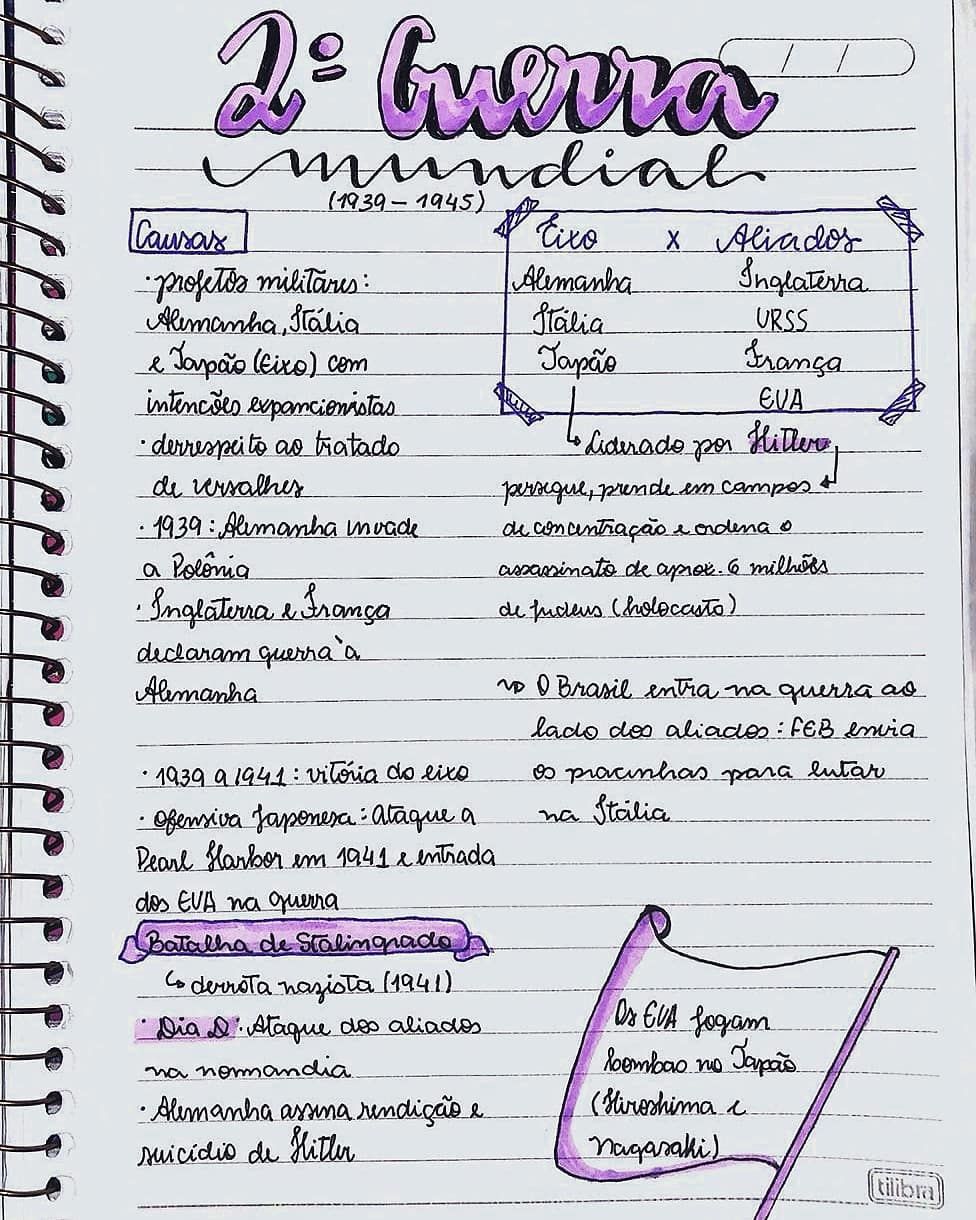 2ª Guerra
mundial
(1939 - 1945)
Causas
· projetos militares:
Alemanha, Itália
e Japão (Eixo) com
intencões expancionistas
· derrespeito ao tratado
de versalhes
· 1939: Alemanha invade
a Polônia
· Inglaterra e França
declaram guerra à
Alemanha
· 1939 a 1941: vitória do eixo
· Ofensiva Japonesa: Ataque a
Pearl Harbor em 1941 e entrada
dos EUA na guerra
Batalha de Stalingrado
↳ derrota nazista (1941)
· Dia D: Ataque dos aliados
na normandia
· Alemanha assina rendição e
suicídio de Hitler
Eixo x Aliados
Alemanha Inglaterra
Itália URSS
Japão França
EUA
↳ Liderado por Hitler
persegue, prende em campos
de concentração e ordena o
assassinato de aprox. 6 milhões
de judeus (holocasto)
~> O Brasil entra na guerra ao
lado dos aliados: FEB envia
os pracinhas para lutar
na Itália
Os EUA jogam
bombao no Japão
(Hiroshima e
Nagasaki)
tilibra